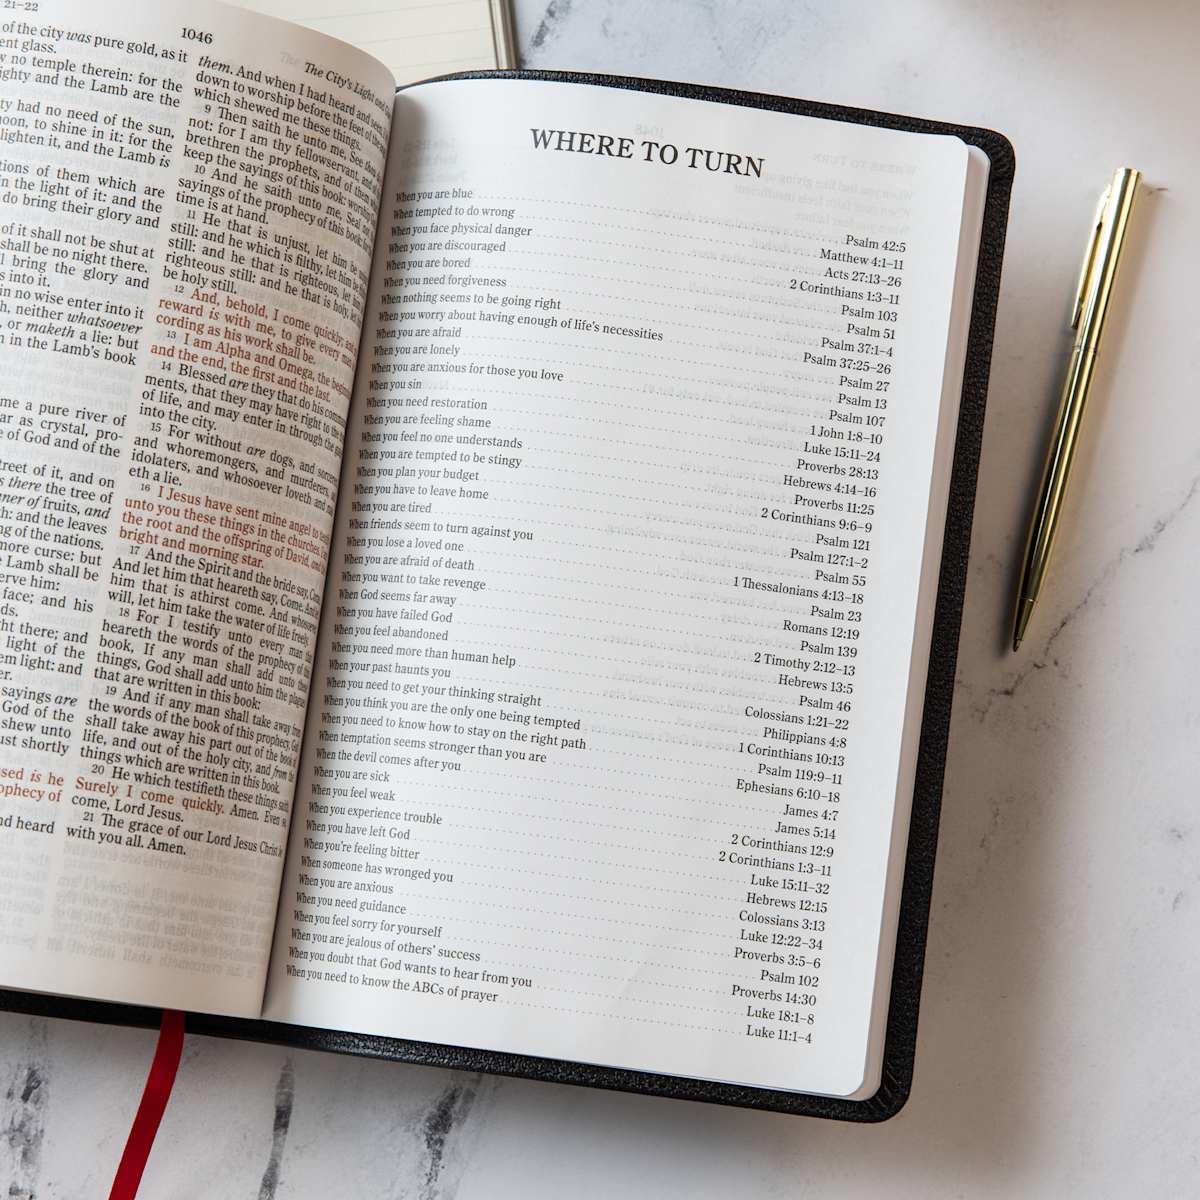 21–22
of the city was pure gold, as it
glass.
no temple therein: for the
and the Lamb are the
had no need of the sun,
to shine in it: for the
lighten it, and the Lamb is
of them which are
in the light of it: and the
do bring their glory and
of it shall not be shut at
shall be no night there.
bring the glory and
into it.
in no wise enter into it
neither whatsoever
or maketh a lie: but
in the Lamb's book
me a pure river of
as crystal, pro-
of God and of the
street of it, and on
there the tree of
of fruits, and
and the leaves
of the nations.
more curse: but
Lamb shall be
serve him:
face; and his
there; and
light of the
light: and
sayings are
God of the
shew unto
must shortly
is he
prophecy of
and heard
1046
The City's Light and
them. And when I had heard and
down to worship before the feet of the
which shewed me these things.
9 Then saith he unto me, See thou
not: for I am thy fellowservant, and of
brethren the prophets, and of them
keep the sayings of this book: worship
10 And he saith unto me, Seal not
sayings of the prophecy of this book: for
time is at hand.
11 He that is unjust, let him be
still: and he which is filthy, let him be
still: and he that is righteous, let him
righteous still: and he that is holy, let
be holy still.
12 And, behold, I come quickly; and
reward is with me, to give every man
cording as his work shall be.
13 I am Alpha and Omega, the beginning
and the end, the first and the last.
14 Blessed are they that do his command
ments, that they may have right to the
of life, and may enter in through the
into the city.
15 For without are dogs, and
and whoremongers, and murderers, and
idolaters, and whosoever loveth and
eth a lie.
16 I Jesus have sent mine angel to
unto you these things in the churches. I am
the root and the offspring of David, and the
bright and morning star.
17 And the Spirit and the bride say, Come.
And let him that heareth say, Come. And let
him that is athirst come. And whosoever
will, let him take the water of life freely.
18 For I testify unto every man that
heareth the words of the prophecy of this
book, If any man shall add unto these
things, God shall add unto him the plagues
that are written in this book:
19 And if any man shall take away from
the words of the book of this prophecy, God
shall take away his part out of the book of
life, and out of the holy city, and from the
things which are written in this book.
20 He which testifieth these things saith,
Surely I come quickly. Amen. Even so,
come, Lord Jesus.
21 The grace of our Lord Jesus Christ be
with you all. Amen.
WHERE TO TURN
When you are blue Psalm 42:5
When tempted to do wrong Matthew 4:1–11
When you face physical danger Acts 27:13–26
When you are discouraged 2 Corinthians 1:3–11
When you are bored Psalm 103
When you need forgiveness Psalm 51
When nothing seems to be going right Psalm 37:1–4
When you worry about having enough of life's necessities Psalm 37:25–26
When you are afraid Psalm 27
When you are lonely Psalm 13
When you are anxious for those you love Psalm 107
When you sin 1 John 1:8–10
When you need restoration Luke 15:11–24
When you are feeling shame Proverbs 28:13
When you feel no one understands Hebrews 4:14–16
When you are tempted to be stingy Proverbs 11:25
When you plan your budget 2 Corinthians 9:6–9
When you have to leave home Psalm 121
When you are tired Psalm 127:1–2
When friends seem to turn against you Psalm 55
When you lose a loved one 1 Thessalonians 4:13–18
When you are afraid of death Psalm 23
When you want to take revenge Romans 12:19
When God seems far away Psalm 139
When you have failed God 2 Timothy 2:12–13
When you feel abandoned Hebrews 13:5
When you need more than human help Psalm 46
When your past haunts you Colossians 1:21–22
When you need to get your thinking straight Philippians 4:8
When you think you are the only one being tempted 1 Corinthians 10:13
When you need to know how to stay on the right path Psalm 119:9–11
When temptation seems stronger than you are Ephesians 6:10–18
When the devil comes after you James 4:7
When you are sick James 5:14
When you feel weak 2 Corinthians 12:9
When you experience trouble 2 Corinthians 1:3–11
When you have left God Luke 15:11–32
When you're feeling bitter Hebrews 12:15
When someone has wronged you Colossians 3:13
When you are anxious Luke 12:22–34
When you need guidance Proverbs 3:5–6
When you feel sorry for yourself Psalm 102
When you are jealous of others' success Proverbs 14:30
When you doubt that God wants to hear from you Luke 18:1–8
When you need to know the ABCs of prayer Luke 11:1–4